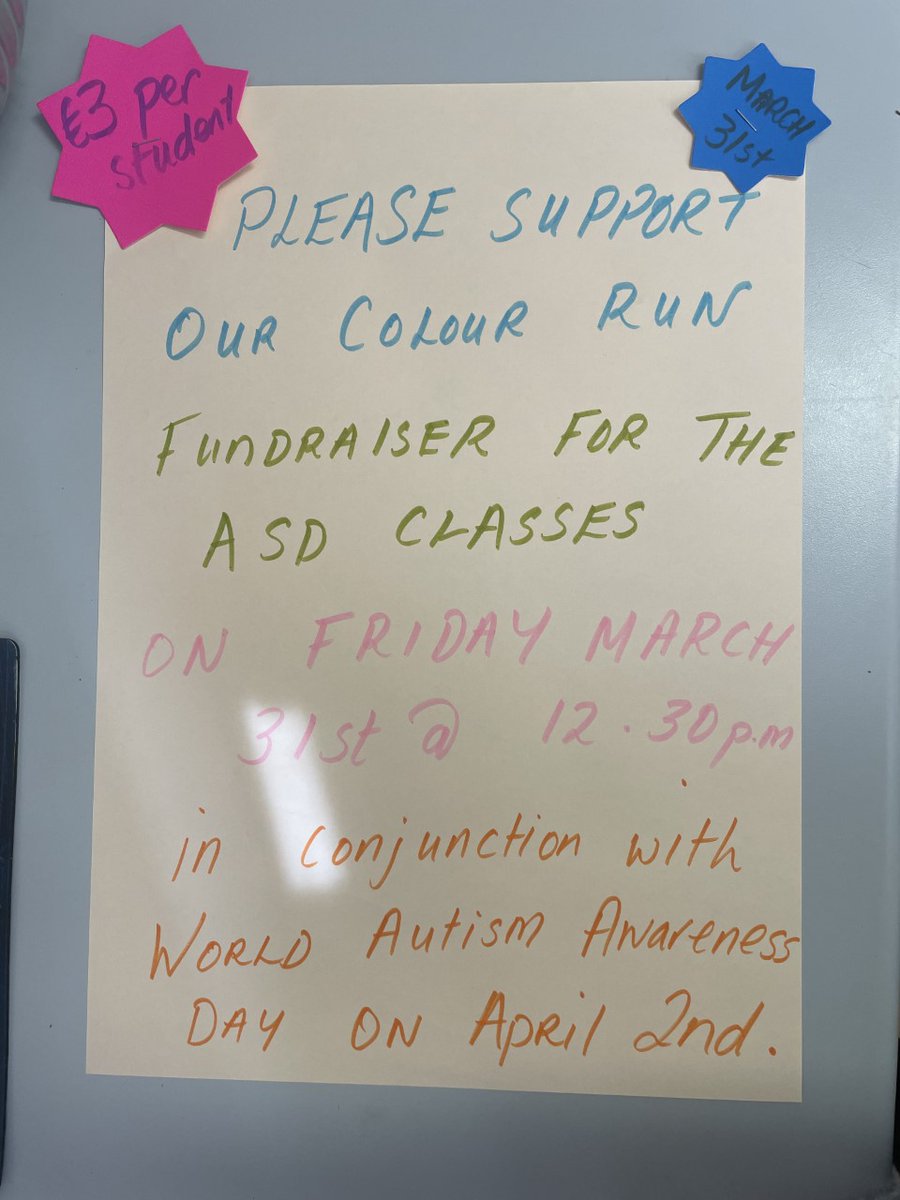 €3 per
student
MARCH
31st
PLEASE SUPPORT
OUR COLOUR RUN
FUNDRAISER FOR THE
ASD CLASSES
ON FRIDAY MARCH
31st @ 12.30p.m
in conjunction with
WORLD AUTISM AWARENESS
DAY ON APRIL 2nd.